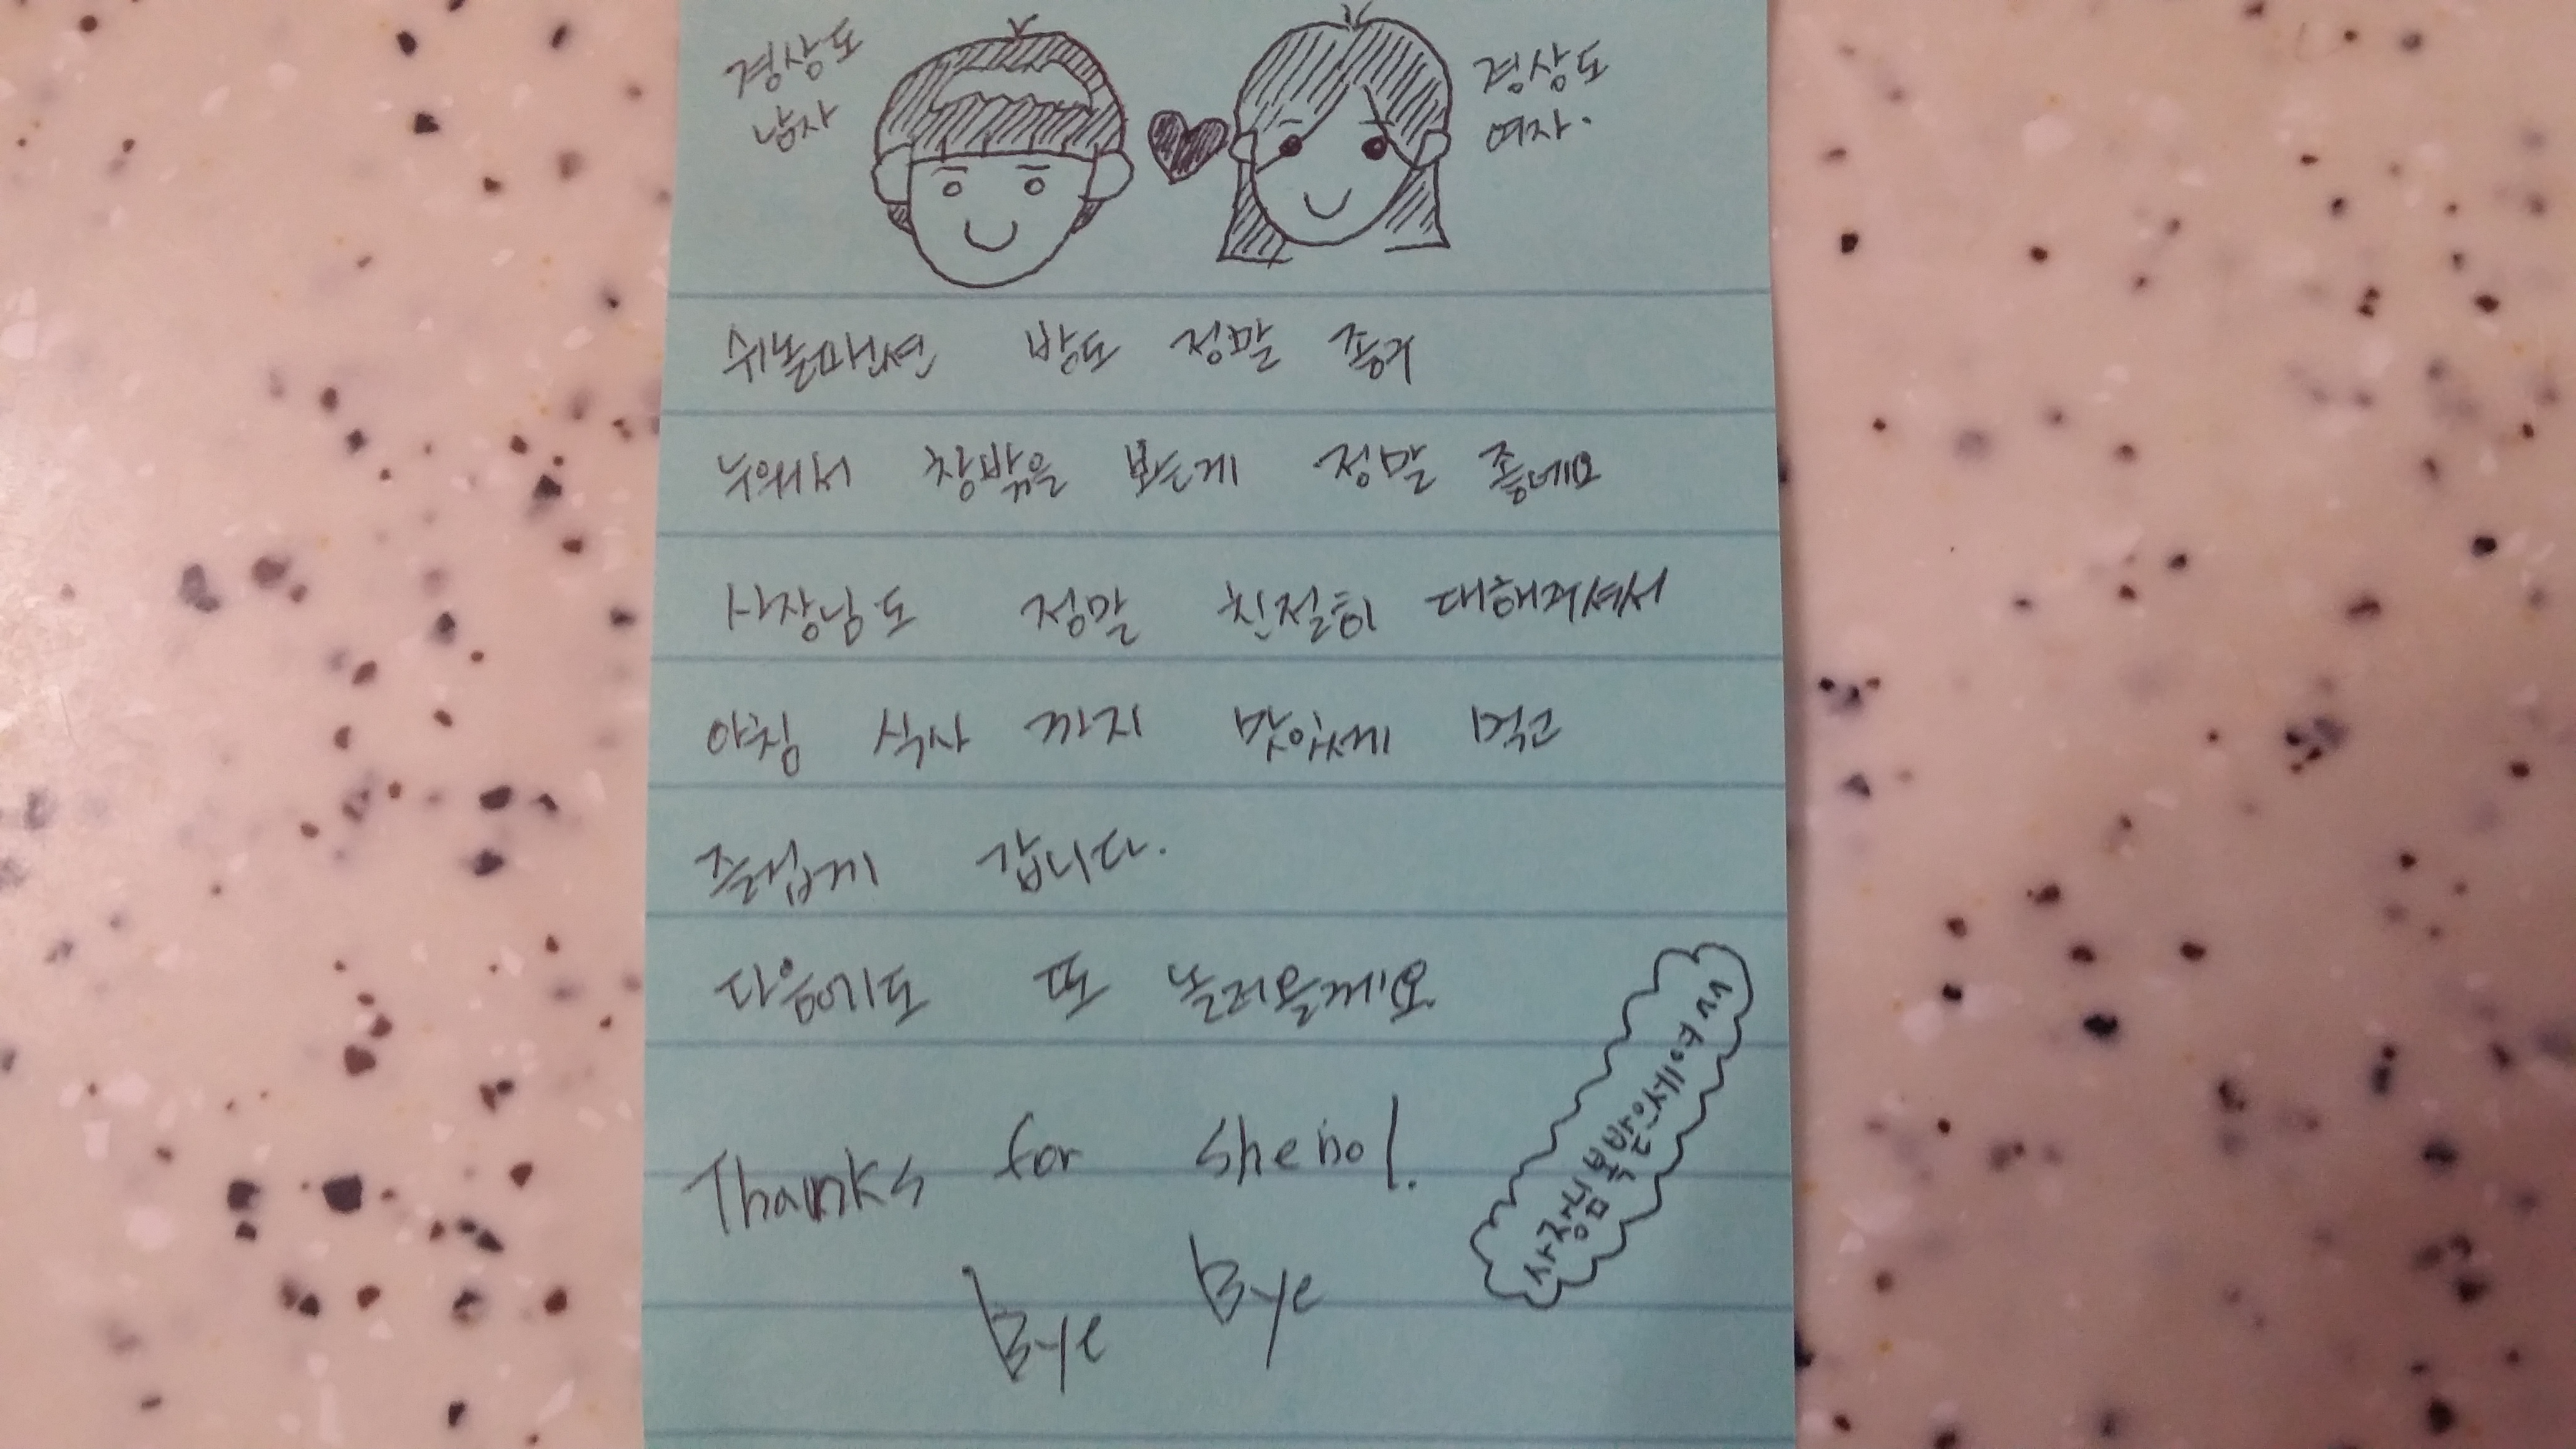 경상도
남자
경상도
여자.
쉬놀펜션 방도 정말 좋거
누워서 창밖을 보는게 정말 좋네요
사장님도 정말 친절히 대해주셔서
아침 식사 까지 맛있게 먹고
즐겁게 갑니다.
다음에도 또 놀러올게요
Thanks for shenol.
Bye Bye
사장님 복 받으세여